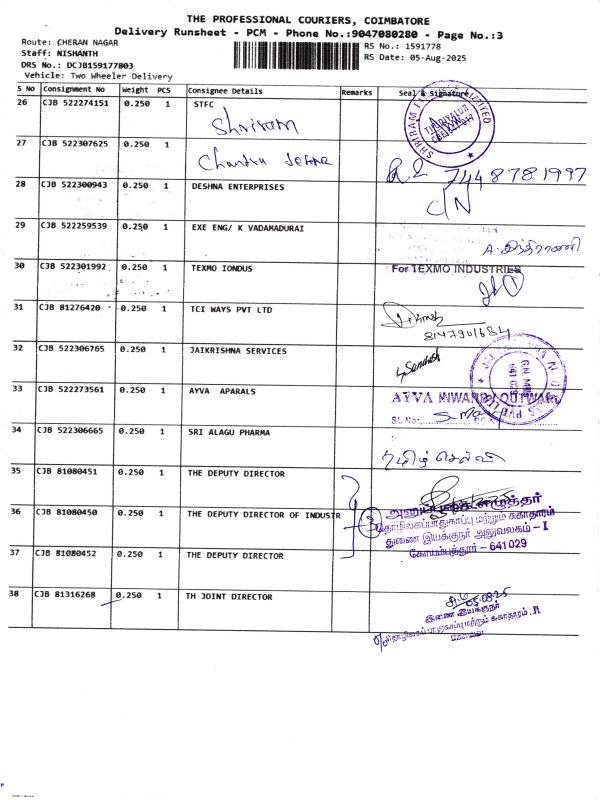 THE PROFESSIONAL COURIERS, COIMBATORE
Delivery Runsheet - PCM - Phone No.:9047080280 - Page No.:3
Route: CHERAN NAGAR
Staff: NISHANTH
DRS No.: DCJB159177803
Vehicle: Two Wheeler Delivery
RS No.: 1591778
RS Date: 05-Aug-2025
S No Consignment No Weight PCS Consignee Details Remarks Seal & Signature
26 CJB 522274151 0.250 1 STFC
Shriram
27 CJB 522307625 0.250 1
7448781997
28 CJB 522300943 0.250 1 DESHNA ENTERPRISES
C/N
29 CJB 522259539 0.250 1 EXE ENG/ K VADAMADURAI
30 CJB 522301992 0.250 1 TEXMO IONDUS
For TEXMO INDUSTRIES
31 CJB 81276420 0.250 1 TCI WAYS PVT LTD
8147901684
32 CJB 522306765 0.250 1 JAIKRISHNA SERVICES
33 CJB 522273561 0.250 1 AYVA APARALS
AYVA INWARD / OUTWARD
Sl. No:
34 CJB 522306665 0.250 1 SRI ALAGU PHARMA
தமிழ் செல்வி
35 CJB 81080451 0.250 1 THE DEPUTY DIRECTOR
36 CJB 81080450 0.250 1 THE DEPUTY DIRECTOR OF INDUSTR
3
தொழிலகப்பாதுகாப்பு மற்றும் சுகாதாரம்
துணை இயக்குநர் அலுவலகம் – I
கோயம்புத்தூர் – 641 029
37 CJB 81080452 0.250 1 THE DEPUTY DIRECTOR
38 CJB 81316268 0.250 1 TH JOINT DIRECTOR
05.08.25
இணை இயக்குநர்
தொழிலகப் பாதுகாப்பு மற்றும் சுகாதாரம்
கோவை